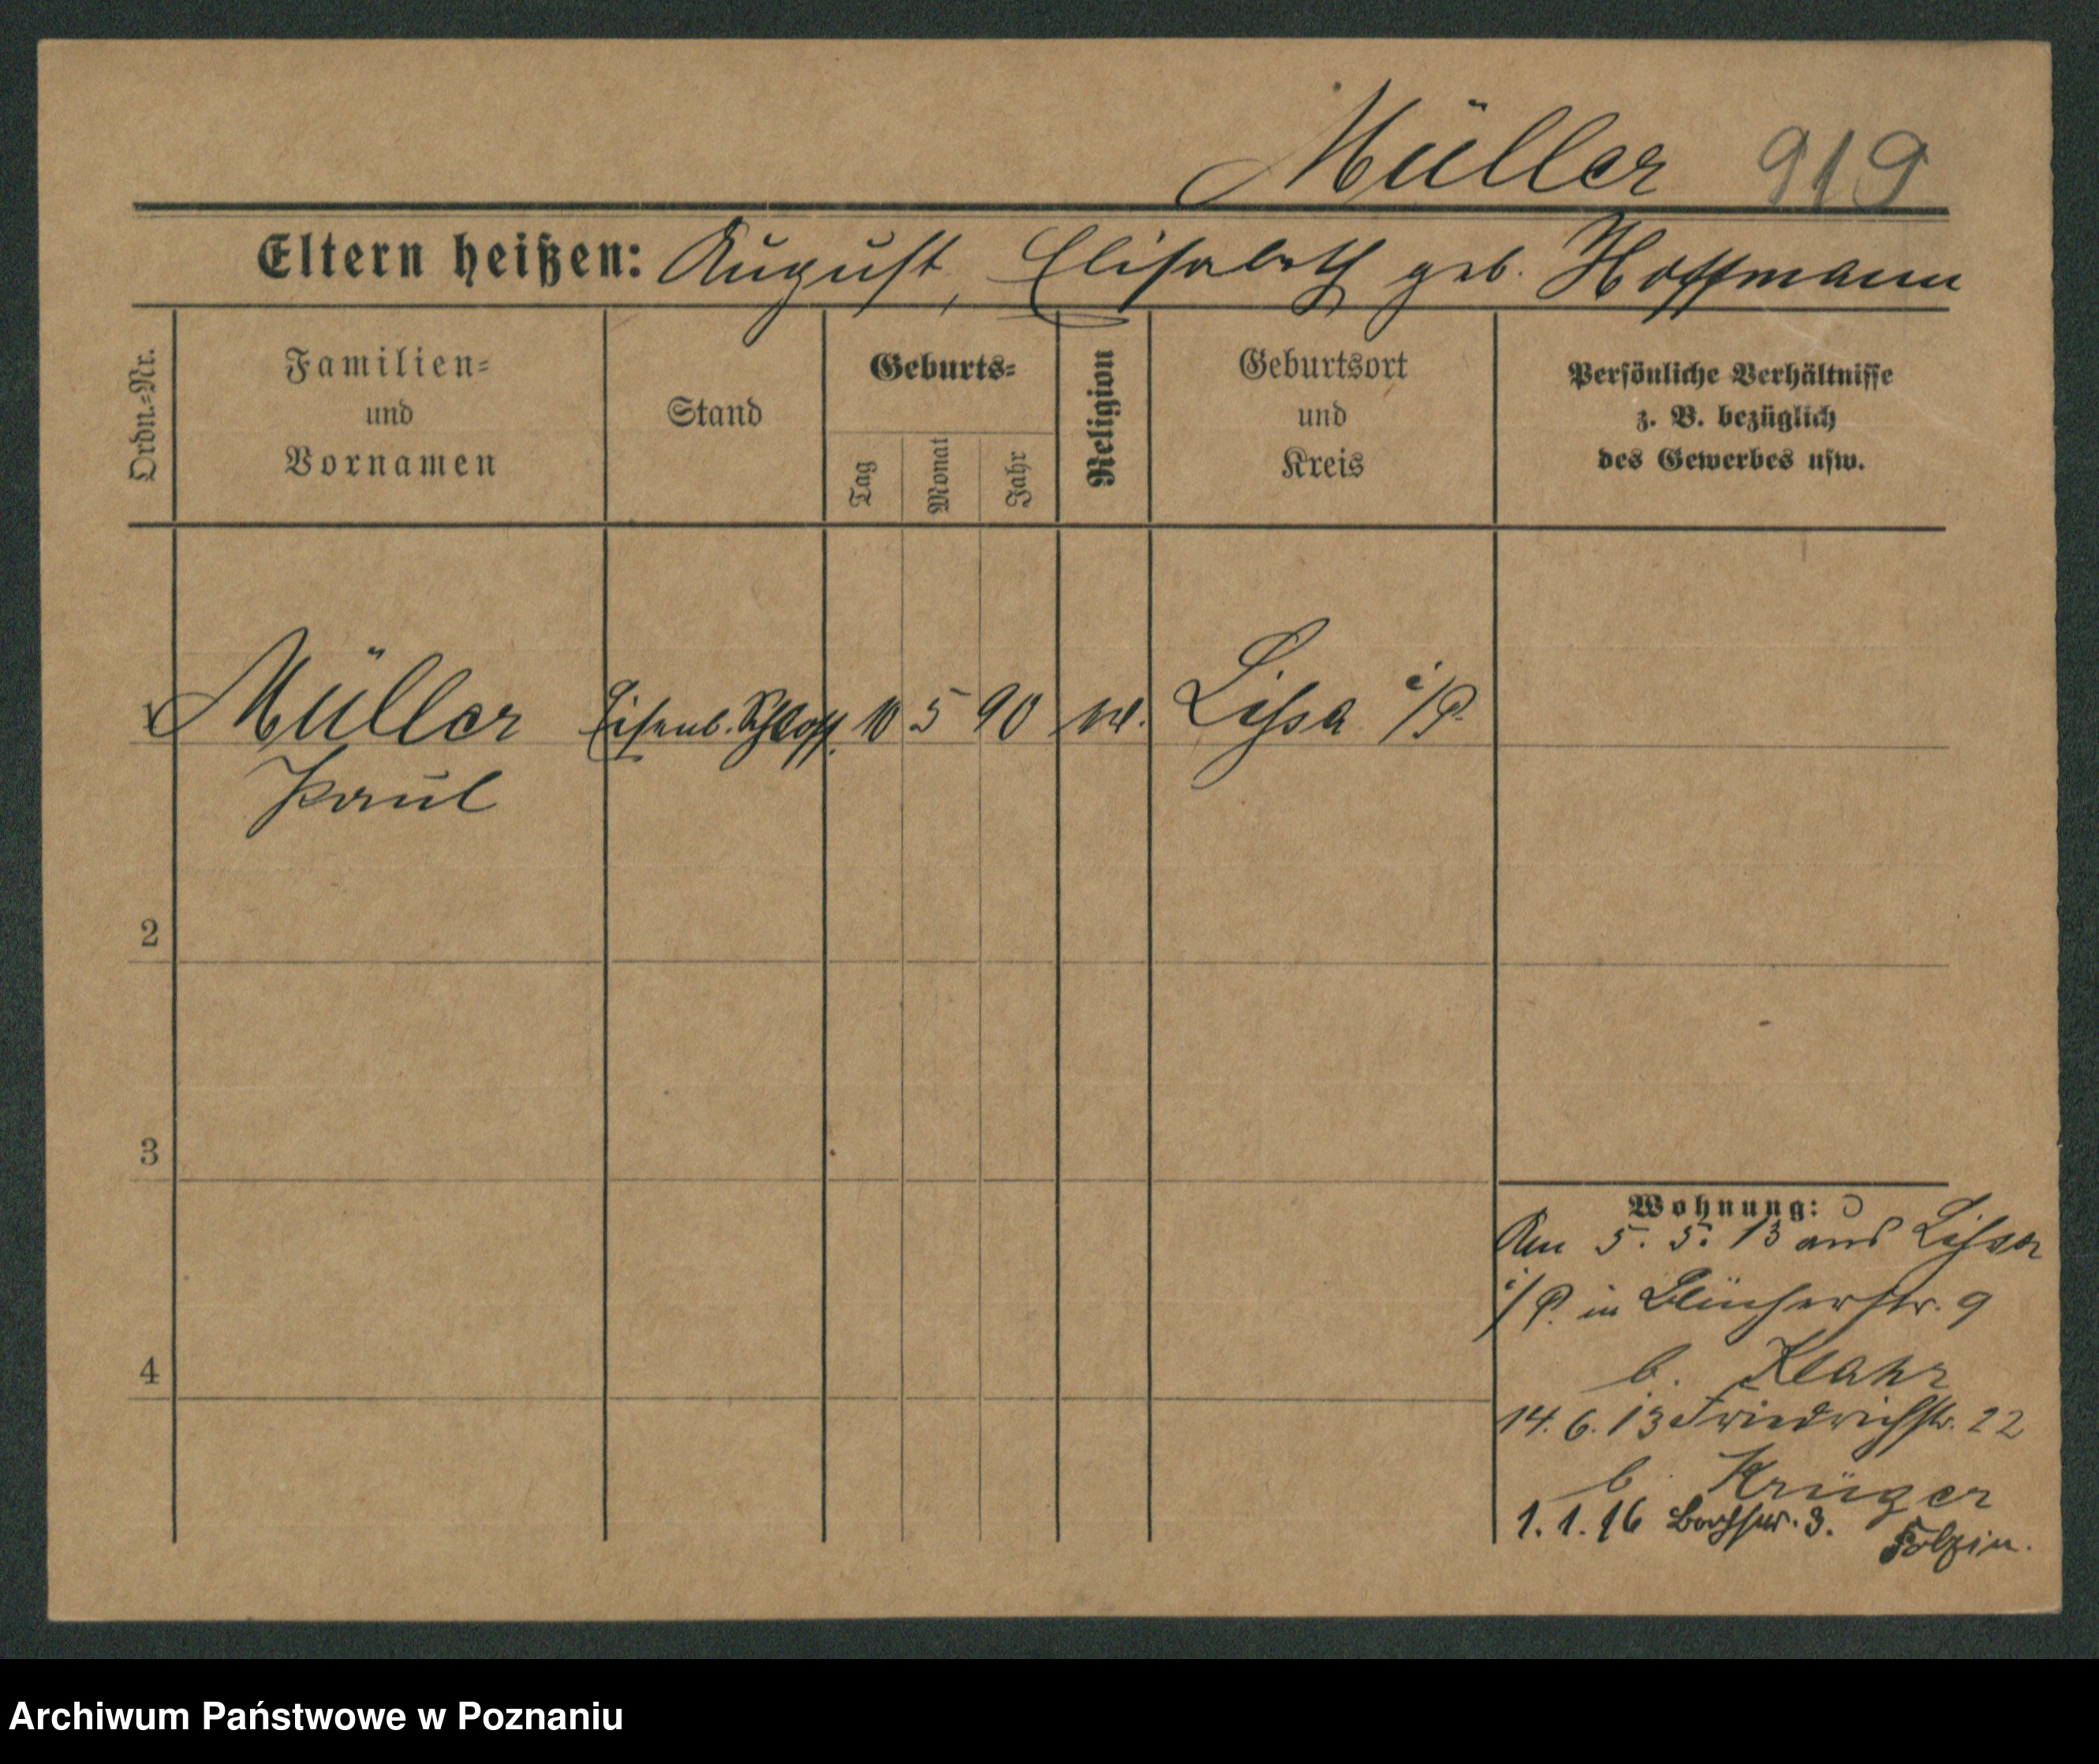 Müller 919
Eltern heißen: August, Elisabeth geb. Hoffmann
Ordn.-Nr.
Familien-
und
Vornamen
Stand
Geburts-
Tag
Monat
Jahr
Religion
Geburtsort
und
Kreis
Persönliche Verhältnisse
z. B. bezüglich
des Gewerbes usw.
1 Müller Eisenb. Schloss. 10 5 90 Lissa i/P.
Paul
2
3
4
Wohnung:
Am 5. 5. 13 aus Lissa
i/P. in Blücherstr. 9
b. Klahr
14. 6. 13 Friedrichstr. 22
b. Krüger
1. 1. 16 3.
Archiwum Państwowe w Poznaniu